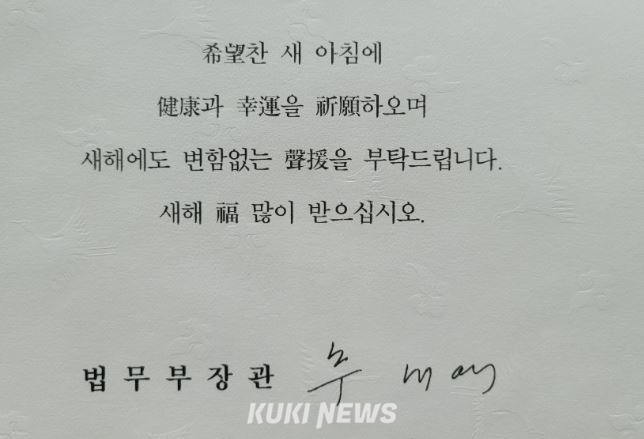 希望찬 새 아침에
健康과 幸運을 祈願하오며
새해에도 변함없는 聲援을 부탁드립니다.
새해 福 많이 받으십시오.
법무부장관 추 미 애
KUKI NEWS